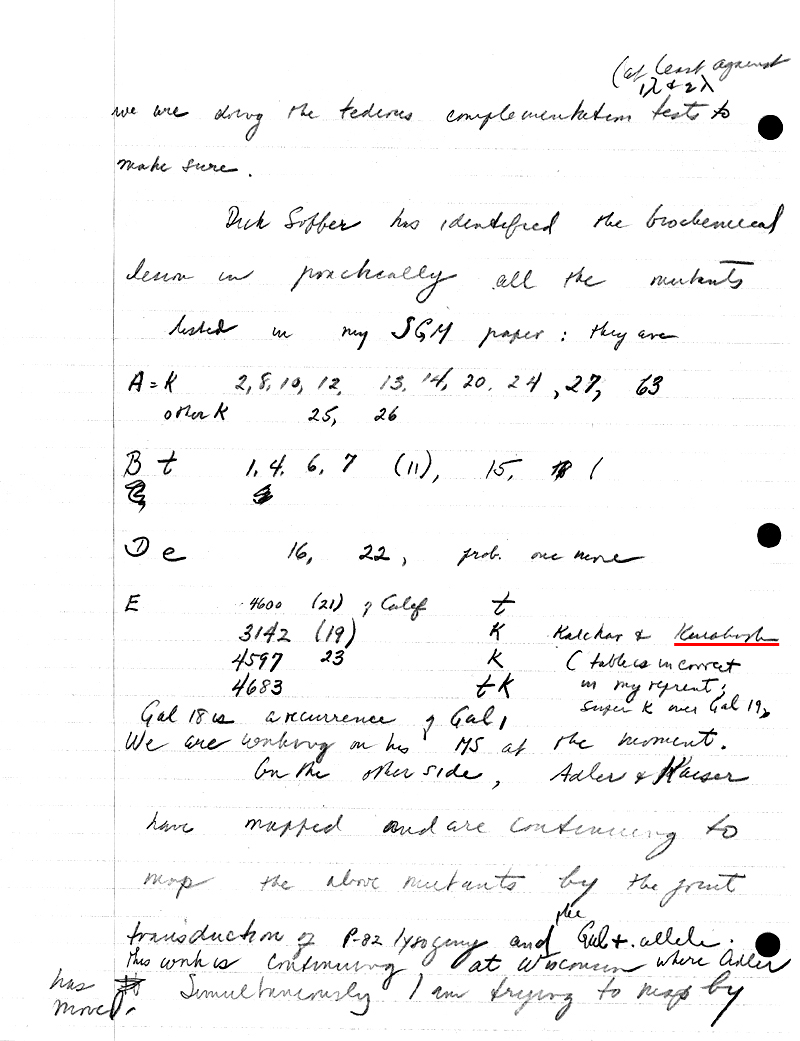 (at least against
1λ + 2λ
we are doing the tedious complementation tests to
make sure.
Dick Soffer has identified the biochemical
lesion in practically all the mutants
listed in my SGM paper: they are
A = K 2, 8, 10, 12, 13, 14, 20, 24, 27, 63
other K 25, 26
B t 1, 4, 6, 7 (11), 15, (
D e 16, 22, prob. one more
E 4600 (21) of Calef t
3142 (19) K Kalckar &
4597 23 K (table is incorrect
4683 t K in my reprint;
super K over Gal 19)
Gal 18 is a recurrence of Gal 1
We are working on his MS at the moment.
On the other side, Adler & Kaiser
have mapped and are continuing to
map the above mutants by the joint
transduction of P-82 lysogeny and the Gal+ allele.
This work is continuing at Wisconsin where Adler
has moved.
Simultaneously I am trying to map by